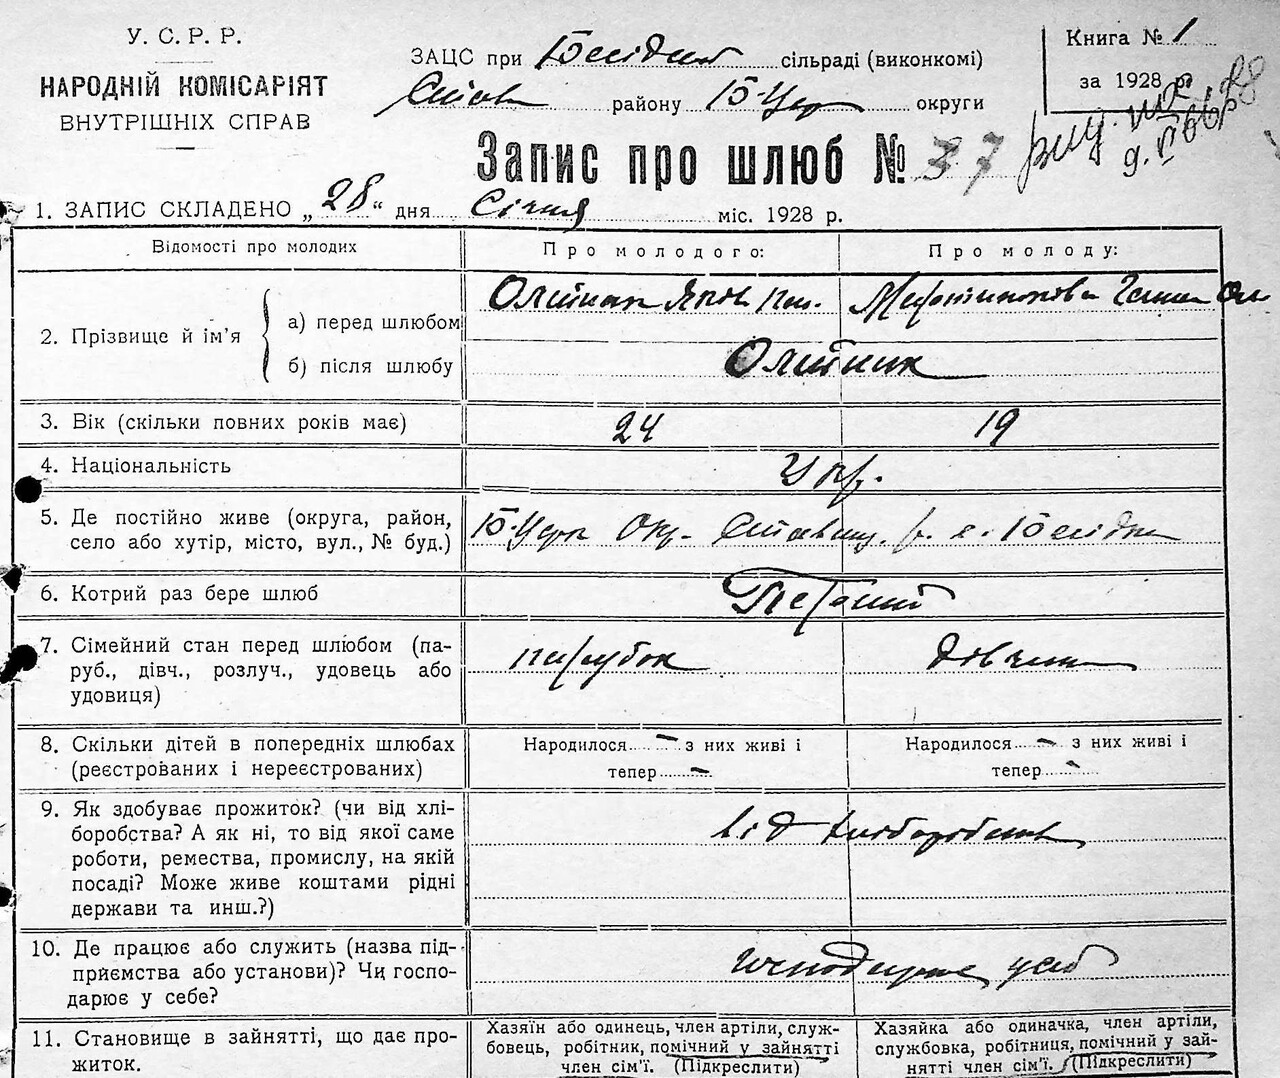 У. С. Р. Р.
НАРОДНІЙ КОМІСАРІЯТ
ВНУТРІШНІХ СПРАВ
ЗАЦС при Бесідки сільраді (виконкомі)
Став району Б-Цер округи
Книга № 1
за 1928 р
Запис про шлюб № 37
1. ЗАПИС СКЛАДЕНО „28“ дня Січня міс. 1928 р.
Відомості про молодих
Про молодого:
Про молоду:
2. Прізвище й ім’я
а) перед шлюбом
Олійник Яків
б) після шлюбу
Олійник
3. Вік (скільки повних років має)
24
19
4. Національність
Укр.
5. Де постійно живе (округа, район,
село або хутір, місто, вул., № буд.)
Б-Церк Окр. Ставищ. р. с. Бесідки
6. Котрий раз бере шлюб
Первий
7. Сімейний стан перед шлюбом (па-
руб., дівч., розлуч., удовець або
удовиця)
парубок
дівчина
8. Скільки дітей в попередніх шлюбах
(реєстрованих і нереєстрованих)
Народилося - з них живі і
тепер -
Народилося - з них живі і
тепер -
9. Як здобуває прожиток? (чи від хлі-
боробства? А як ні, то від якої саме
роботи, ремества, промислу, на якій
посаді? Може живе коштами рідні
держави та инш.?)
від хліборобства
10. Де працює або служить (назва під-
приємства або установи)? Чи госпо-
дарює у себе?
11. Становище в зайнятті, що дає про-
житок.
Хазяїн або одинець, член артіли, служ-
бовець, робітник, помічний у зайнятті
член сім’ї. (Підкреслити)
Хазяйка або одиначка, член артіли,
службовка, робітниця, помічний у зай-
нятті член сім’ї. (Підкреслити)